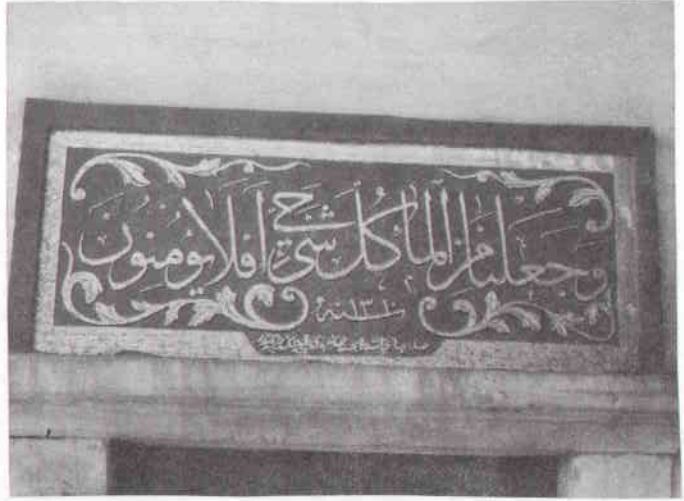 وجعلنا من الماء كل شئ حي افلا يؤمنون
سنه ١٣١٠